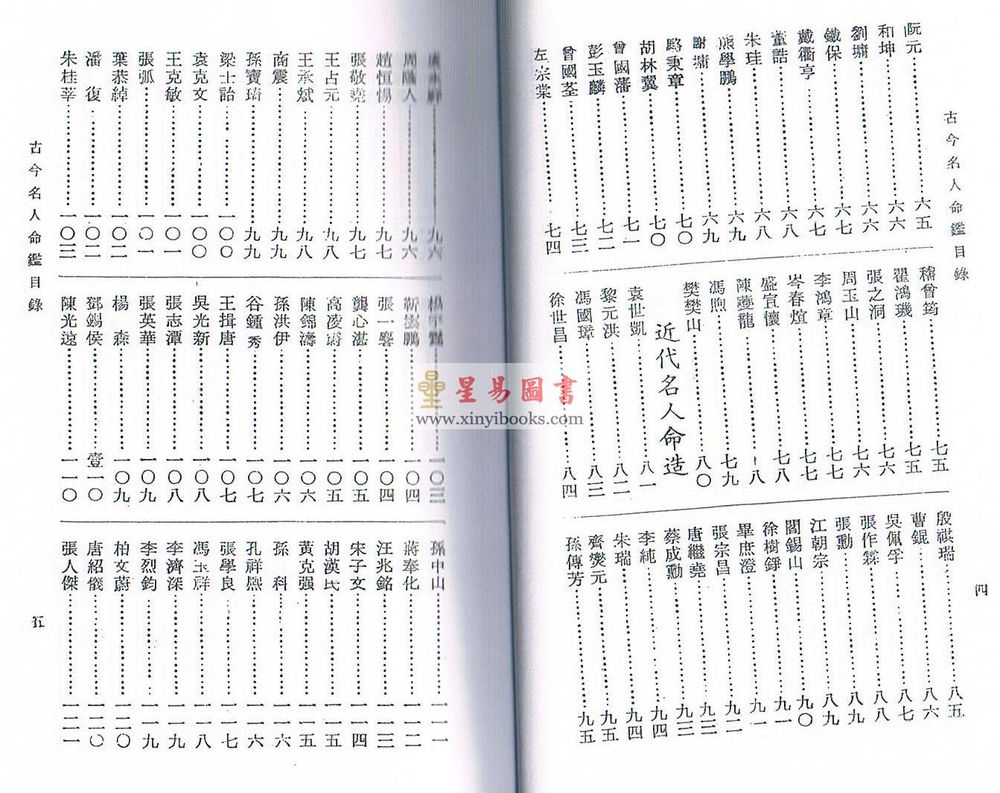 古今名人命鑑目錄
阮元……六五
和坤……六六
劉墉……六六
鐵保……六七
戴衢亨……六七
董誥……六八
朱珪……六八
熊學鵬……六九
謝墉……六九
駱秉章……七〇
胡林翼……七〇
曾國藩……七一
彭玉麟……七二
曾國荃……七三
左宗棠……七四
嵇曾筠……七五
翟鴻璣……七五
張之洞……七六
周玉山……七六
李鴻章……七七
岑春煊……七七
盛宣懷……七八
陳夔龍……八
馮煦……七九
樊樊山……八〇
近代名人命造
袁世凱……八一
黎元洪……八二
馮國璋……八三
徐世昌……八四
殷祺瑞……八五
曹錕……八六
吳佩孚……八七
張作霖……八八
張勳……八九
江朝宗……八九
閻錫山……九〇
徐樹錚……九一
畢庶澄……九一
張宗昌……九二
唐繼堯……九三
蔡成勳……九三
李純……九四
朱瑞……九四
齊燮元……九五
孫傳芳……九五
四
九六
周蔭人……九六
趙恒惕……九七
張敬堯……九七
王占元……九八
王承斌……九八
商震……九九
孫寶琦……九九
梁士詒……一〇〇
袁克文……一〇〇
王克敏……一〇一
張弧……一〇一
葉恭綽……一〇二
潘復……一〇二
朱桂莘……一〇三
楊宇霆……一〇三
靳雲鵬……一〇四
張一麐……一〇四
龔心湛……一〇五
高凌霨……一〇五
陳錦濤……一〇六
孫洪伊……一〇六
谷鍾秀……一〇七
王揖唐……一〇七
吳光新……一〇八
張志潭……一〇八
張英華……一〇九
楊森……一〇九
鄧錫侯……壹一〇
陳光遠……一一〇
孫中山……一一一
蔣奉化……一一二
汪兆銘……一一三
宋子文……一一四
胡漢民……一一五
黃克强……一一五
孫科……一一六
孔祥熙……一一六
張學良……一一七
馮玉祥……一一八
李濟深……一一九
李烈鈞……一一九
柏文蔚……一二〇
唐紹儀……一二〇
張人傑……一二一
古今名人命鑑目錄
五
星易圖書
www.xinyibooks.com